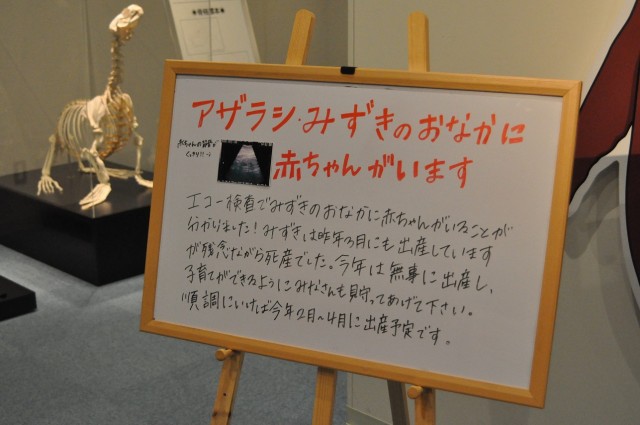 アザラシ・みずきのおなかに
赤ちゃんがいます
エコー検査でみずきのおなかに赤ちゃんがいることが
分かりました！みずきは昨年3月にも出産しています
が残念ながら死産でした。今年は無事に出産し、
子育てができるようにみなさんも見守ってあげて下さい。
順調にいけば今年2月〜4月に出産予定です。